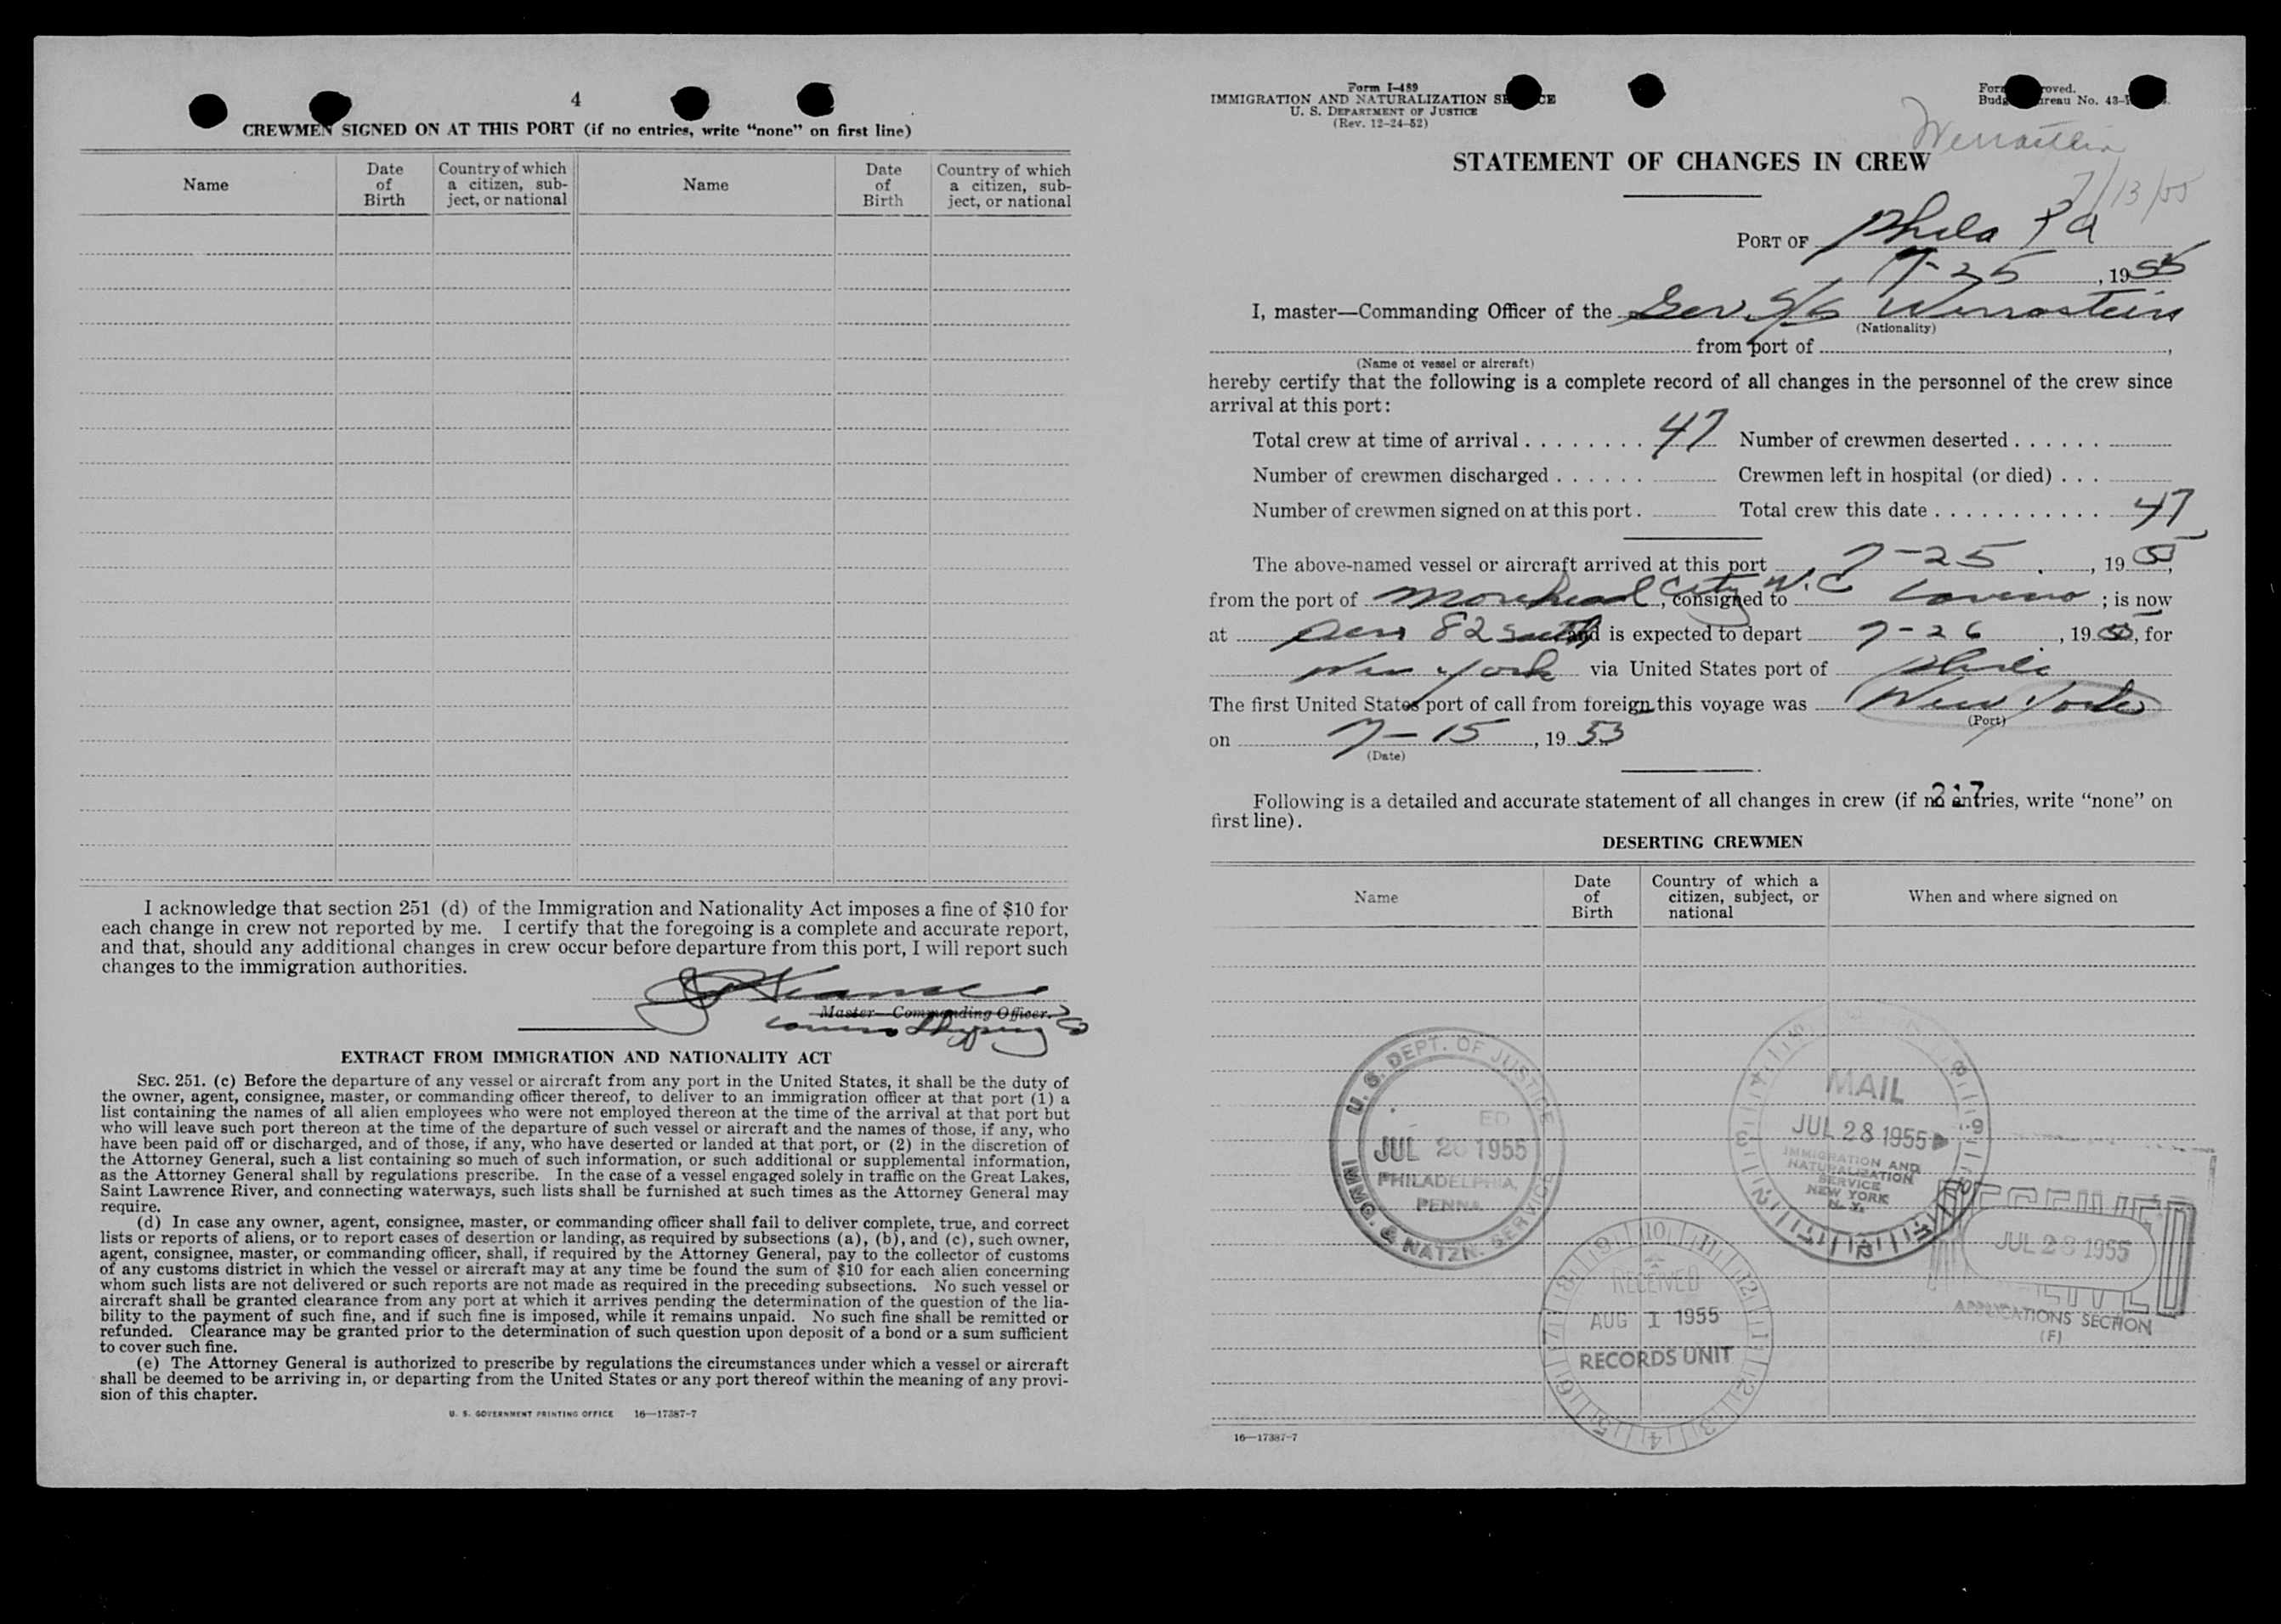 4
CREWMEN SIGNED ON AT THIS PORT (if no entries, write “none” on first line)
Name
Date of Birth
Country of which a citizen, subject, or national
Name
Date of Birth
Country of which a citizen, subject, or national
I acknowledge that section 251 (d) of the Immigration and Nationality Act imposes a fine of $10 for
each change in crew not reported by me. I certify that the foregoing is a complete and accurate report,
and that, should any additional changes in crew occur before departure from this port, I will report such
changes to the immigration authorities.
Master—Commanding Officer.
EXTRACT FROM IMMIGRATION AND NATIONALITY ACT
SEC. 251. (c) Before the departure of any vessel or aircraft from any port in the United States, it shall be the duty of
the owner, agent, consignee, master, or commanding officer thereof, to deliver to an immigration officer at that port (1) a
list containing the names of all alien employees who were not employed thereon at the time of the arrival at that port but
who will leave such port thereon at the time of the departure of such vessel or aircraft and the names of those, if any, who
have been paid off or discharged, and of those, if any, who have deserted or landed at that port, or (2) in the discretion of
the Attorney General, such a list containing so much of such information, or such additional or supplemental information,
as the Attorney General shall by regulations prescribe. In the case of a vessel engaged solely in traffic on the Great Lakes,
Saint Lawrence River, and connecting waterways, such lists shall be furnished at such times as the Attorney General may
require.
(d) In case any owner, agent, consignee, master, or commanding officer shall fail to deliver complete, true, and correct
lists or reports of aliens, or to report cases of desertion or landing, as required by subsections (a), (b), and (c), such owner,
agent, consignee, master, or commanding officer, shall, if required by the Attorney General, pay to the collector of customs
of any customs district in which the vessel or aircraft may at any time be found the sum of $10 for each alien concerning
whom such lists are not delivered or such reports are not made as required in the preceding subsections. No such vessel or
aircraft shall be granted clearance from any port at which it arrives pending the determination of the question of the lia-
bility to the payment of such fine, and if such fine is imposed, while it remains unpaid. No such fine shall be remitted or
refunded. Clearance may be granted prior to the determination of such question upon deposit of a bond or a sum sufficient
to cover such fine.
(e) The Attorney General is authorized to prescribe by regulations the circumstances under which a vessel or aircraft
shall be deemed to be arriving in, or departing from the United States or any port thereof within the meaning of any provi-
sion of this chapter.
U. S. GOVERNMENT PRINTING OFFICE 16—17387-7
Form I-489
IMMIGRATION AND NATURALIZATION
U. S. DEPARTMENT OF JUSTICE
(Rev. 12-24-52)
No. 43-
Werrastein
7/13/55
STATEMENT OF CHANGES IN CREW
PORT OF Phila Pa
7-25, 1955
I, master—Commanding Officer of the Ger. S/S Werrastein
(Nationality)
from port of
(Name of vessel or aircraft)
hereby certify that the following is a complete record of all changes in the personnel of the crew since
arrival at this port:
Total crew at time of arrival 47 Number of crewmen deserted
Number of crewmen discharged Crewmen left in hospital (or died)
Number of crewmen signed on at this port. Total crew this date 47
The above-named vessel or aircraft arrived at this port 7-25, 1955,
from the port of Morehead City N.C, consigned to Lavino; is now
at Pier 82 South and is expected to depart 7-26, 1955, for
New York via United States port of Phila
The first United States port of call from foreign this voyage was New York
(Port)
on 7-15, 1953
(Date)
217
Following is a detailed and accurate statement of all changes in crew (if no entries, write “none” on
first line).
DESERTING CREWMEN
Name
Date of Birth
Country of which a citizen, subject, or national
When and where signed on
U. S. DEPT. OF JUSTICE
JUL 1955
PHILADELPHIA,
PENNA.
IMMG. & NATZN. SERVICE
MAIL
JUL 28 1955
IMMIGRATION AND
NATURALIZATION
SERVICE
NEW YORK
N. Y.
RECEIVED
JUL 28 1955
APPLICATIONS SECTION
(F)
RECEIVED
AUG 1 1955
RECORDS UNIT
16—17387-7